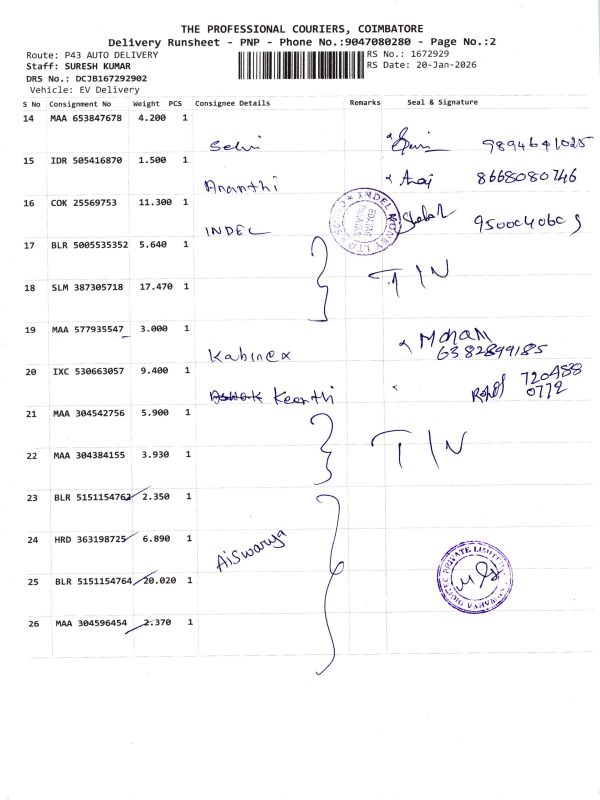 THE PROFESSIONAL COURIERS, COIMBATORE
Delivery Runsheet - PNP - Phone No.:9047080280 - Page No.:2
Route: P43 AUTO DELIVERY RS No.: 1672929
Staff: SURESH KUMAR RS Date: 20-Jan-2026
DRS No.: DCJB167292902
Vehicle: EV Delivery
S No Consignment No Weight PCS Consignee Details Remarks Seal & Signature
14 MAA 653847678 4.200 1
Selvi 9894641025
15 IDR 505416870 1.500 1
Ananthi 8668080746
16 COK 25569753 11.300 1
INDEL
INDEL MONEY LTD
17 BLR 5005535352 5.640 1
T/N
18 SLM 387305718 17.470 1
19 MAA 577935547 3.000 1
Kabinex Mohan
6382899185
20 IXC 530663057 9.400 1
Keerthi 720488
0772
21 MAA 304542756 5.900 1
T/N
22 MAA 304384155 3.930 1
23 BLR 5151154762 2.350 1
24 HRD 363198725 6.890 1
Aiswarya
25 BLR 5151154764 20.020 1
PRIVATE LIMITED
26 MAA 304596454 2.370 1